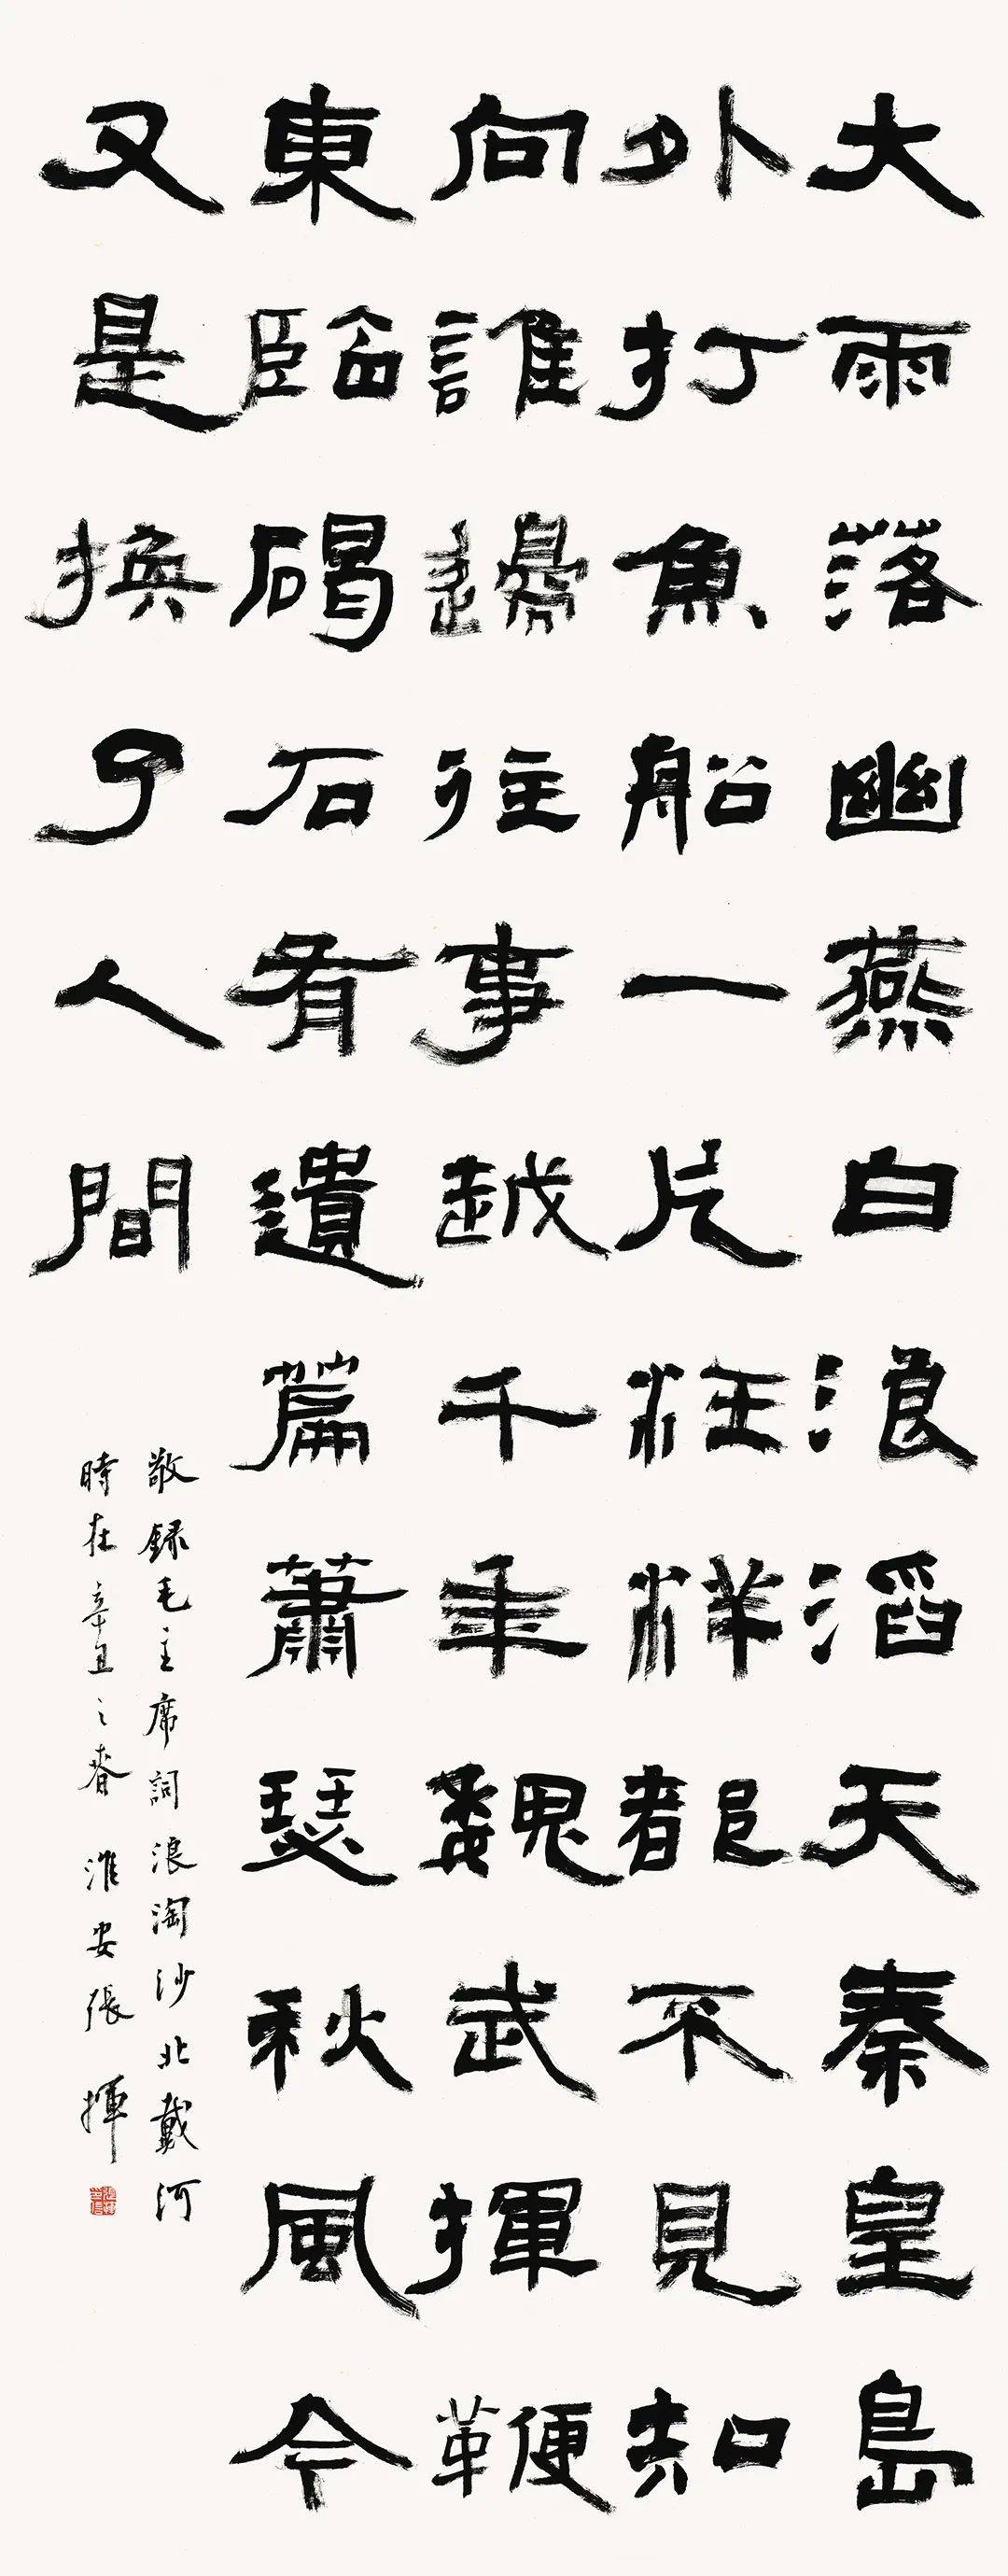 大雨落幽燕白浪滔天秦皇島
外打魚船一片汪洋都不見知
向誰邊往事越千年魏武揮鞭
東臨碣石有遺篇蕭瑟秋風今
又是換了人間
敬録毛主席詞浪淘沙北戴河
時在辛丑之春淮安張揮